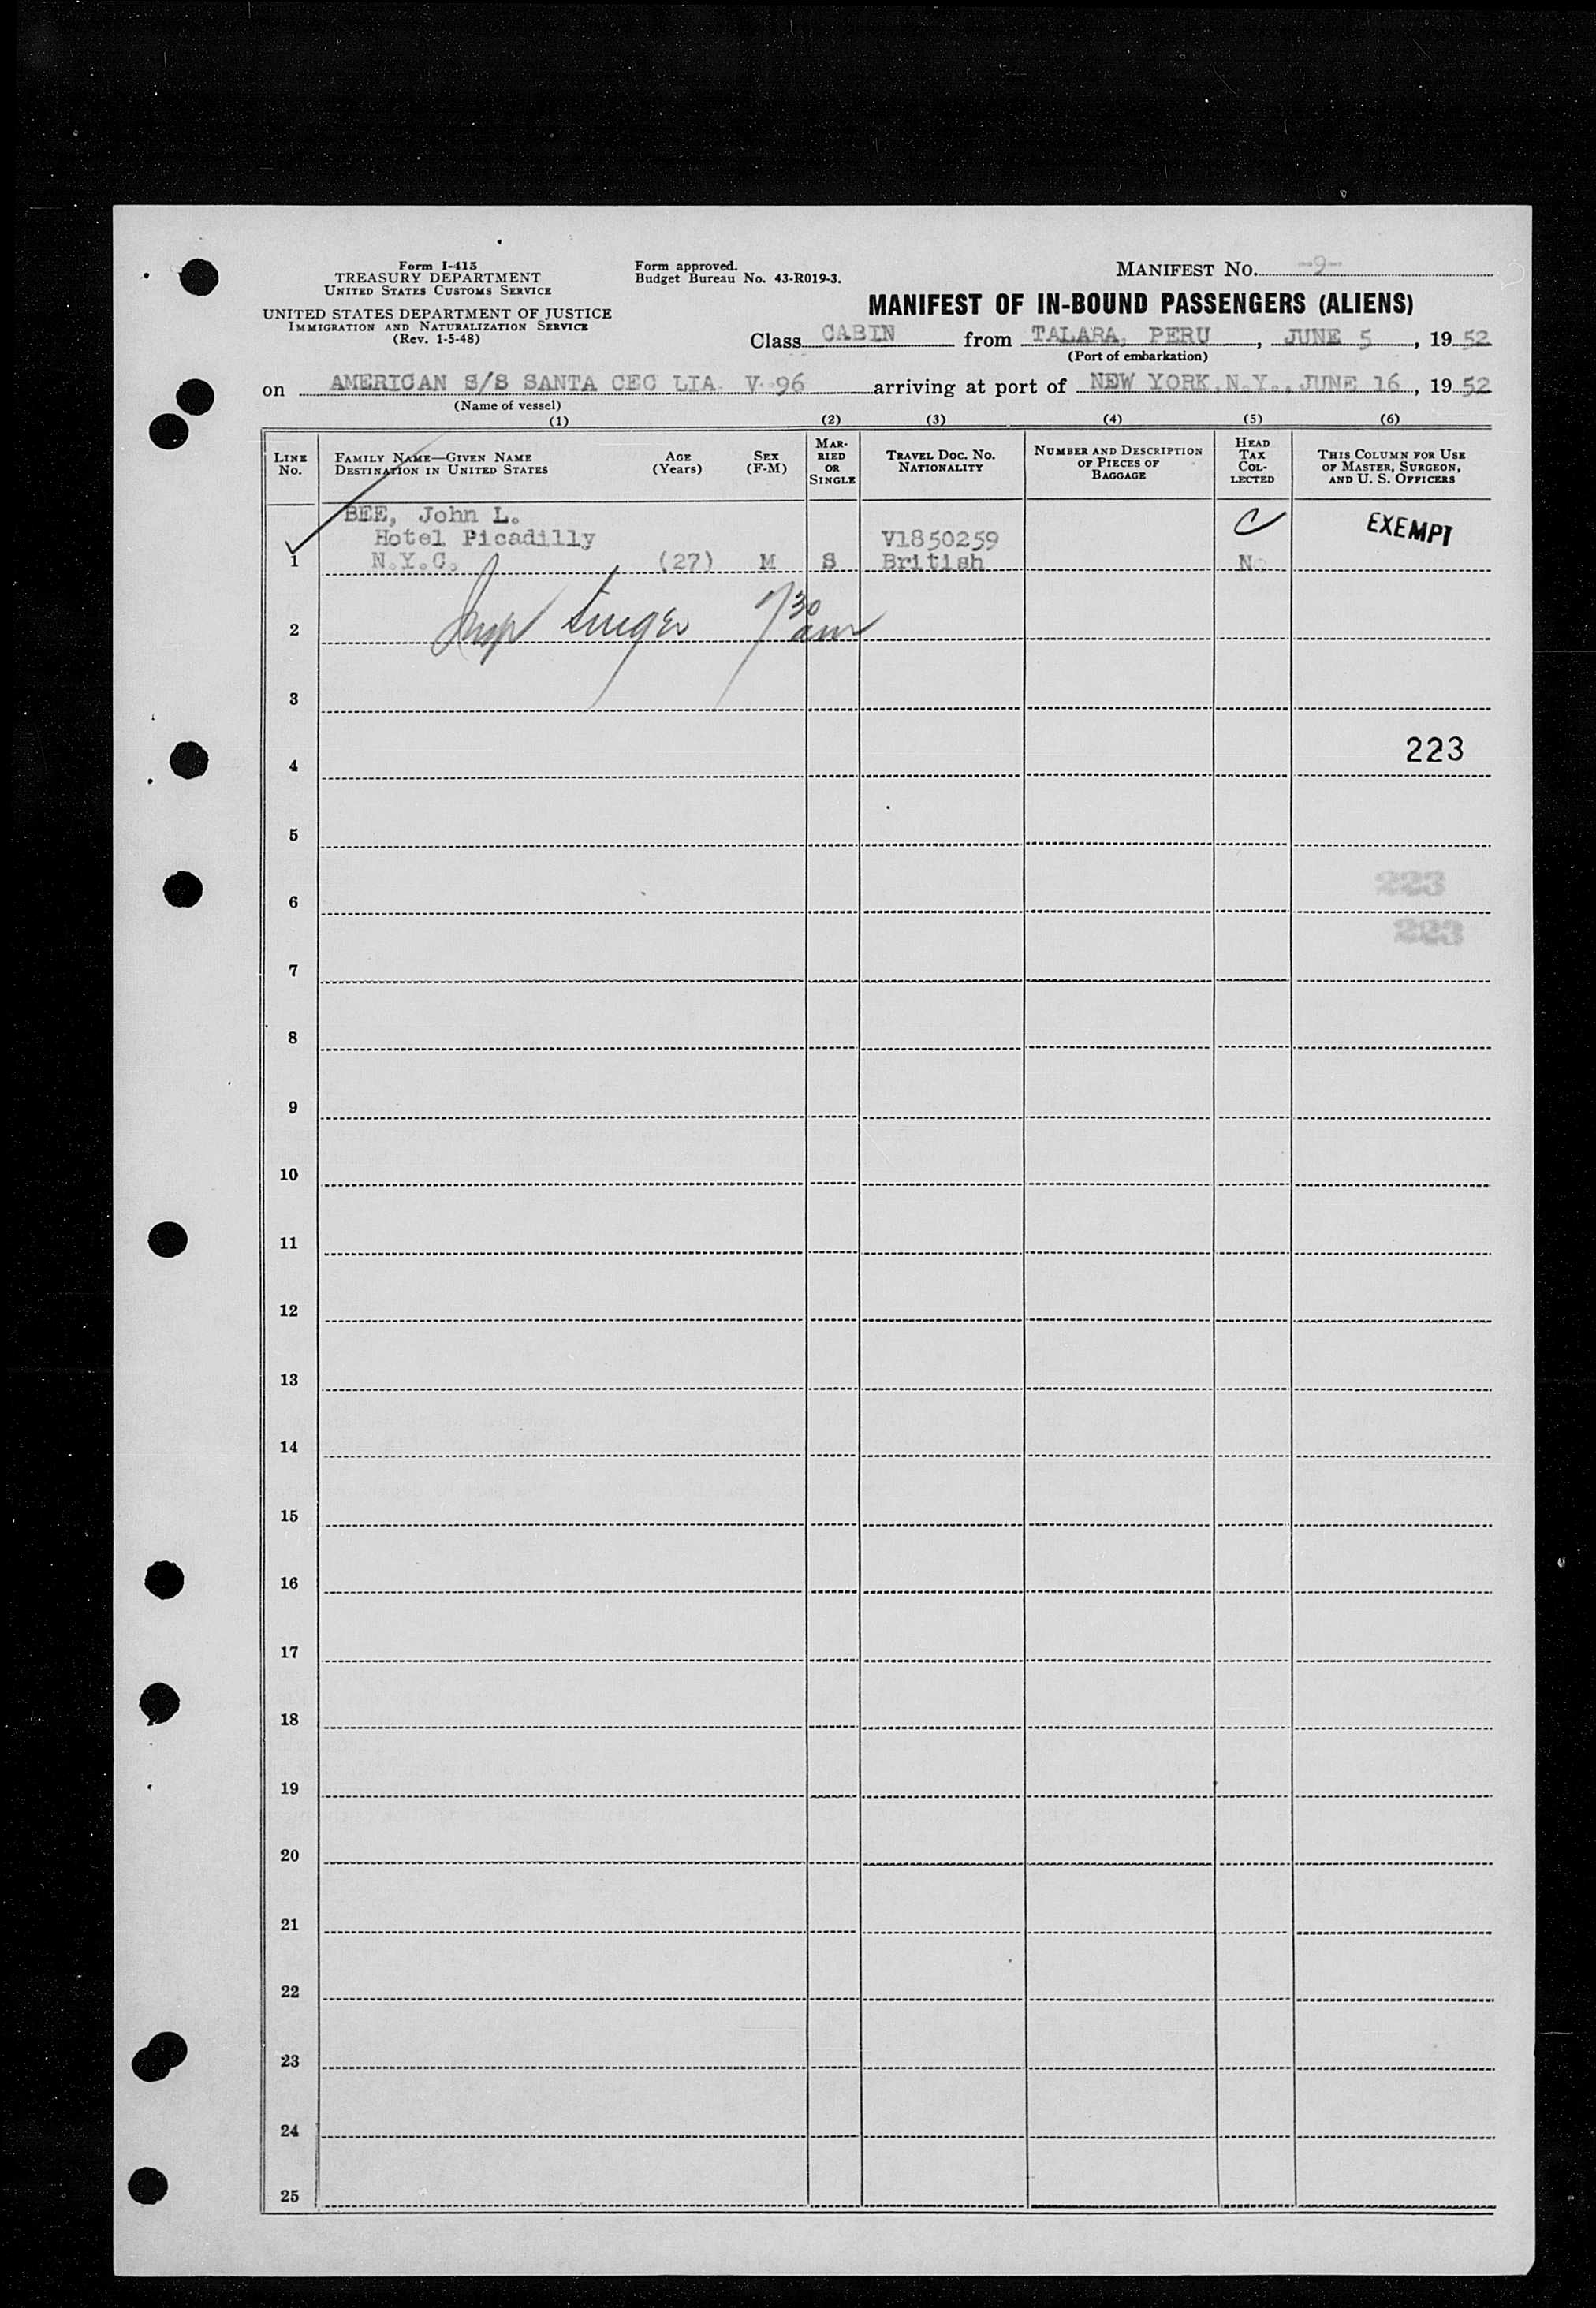 Form I-415
TREASURY DEPARTMENT
UNITED STATES CUSTOMS SERVICE
UNITED STATES DEPARTMENT OF JUSTICE
IMMIGRATION AND NATURALIZATION SERVICE
(Rev. 1-5-48)
Form approved.
Budget Bureau No. 43-R019-3.
MANIFEST NO. -9-
MANIFEST OF IN-BOUND PASSENGERS (ALIENS)
Class CABIN from TALARA, PERU, JUNE 5, 19 52
(Port of embarkation)
on AMERICAN S/S SANTA CEC LIA V-96 arriving at port of NEW YORK, N.Y., JUNE 16, 19 52
(Name of vessel)
(1) (2) (3) (4) (5) (6)
LINE No.
FAMILY NAME—GIVEN NAME
DESTINATION IN UNITED STATES
AGE (Years)
SEX (F-M)
MARRIED OR SINGLE
TRAVEL DOC. NO. NATIONALITY
NUMBER AND DESCRIPTION OF PIECES OF BAGGAGE
HEAD TAX COLLECTED
THIS COLUMN FOR USE OF MASTER, SURGEON, AND U. S. OFFICERS
BEE, John L.
Hotel Picadilly V1850259 C EXEMPT
1 N.Y.C. (27) M S British No
2 Insp Singer 7 30 am
3
4 223
5
6 223
7 223
8
9
10
11
12
13
14
15
16
17
18
19
20
21
22
23
24
25